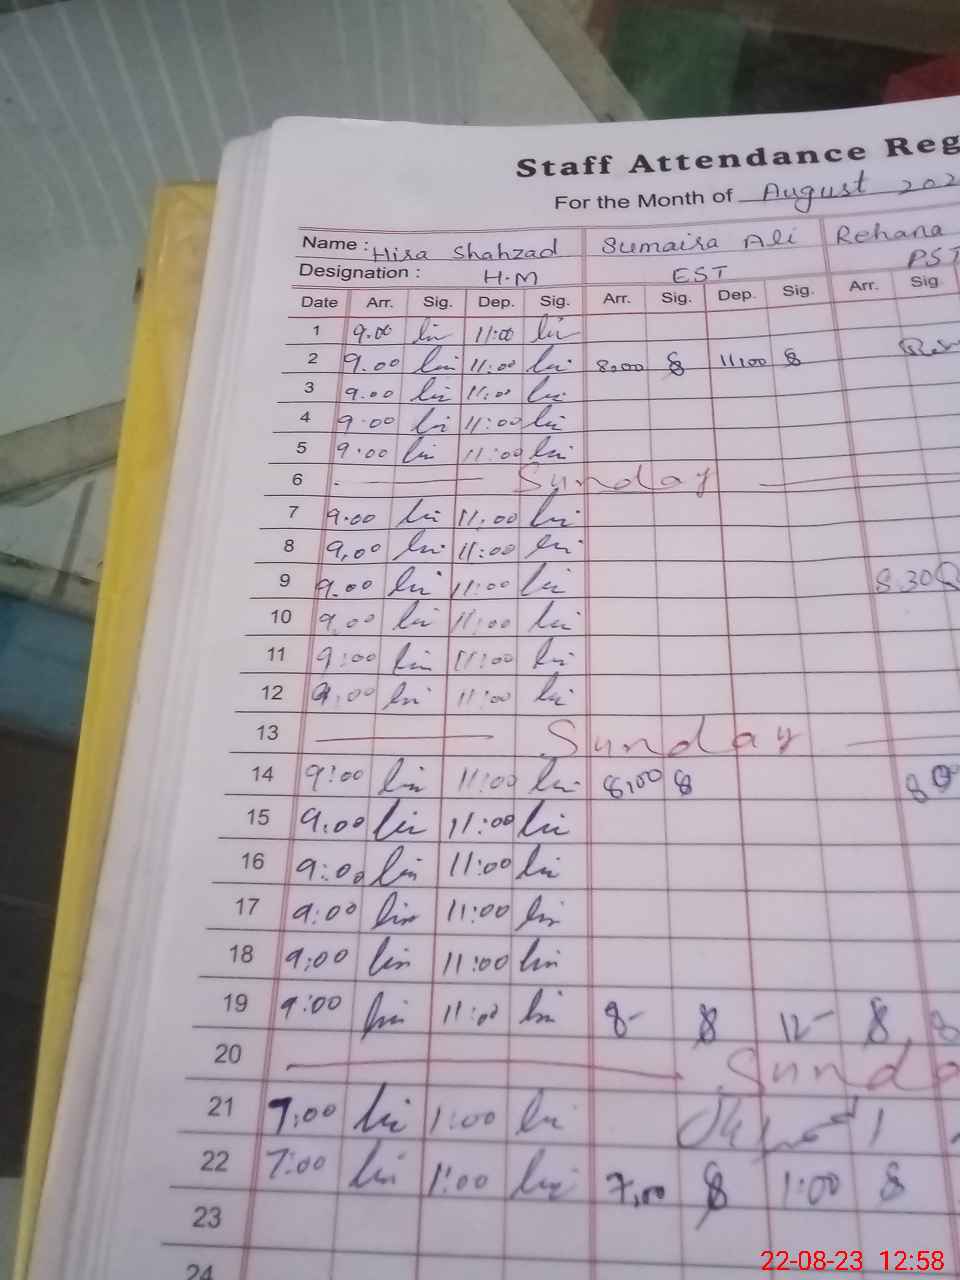 Staff Attendance Reg
For the Month of August 202
Name : Hira Shahzad Sumaira Ali Rehana
Designation : H.M EST PST
Date Arr. Sig. Dep. Sig. Arr. Sig. Dep. Sig. Arr. Sig
1 9.00 11:00
2 9.00 11:00 8,00 11,00
3 9.00 11:00
4 9.00 11:00
5 9.00 11:00
6 Sunday
7 9.00 11:00
8 9.00 11:00
9 9.00 11:00 8.30
10 9.00 11:00
11 9:00 11:00
12 9.00 11:00
13 Sunday
14 9:00 11:00 8,00 8
15 9:00 11:00
16 9:00 11:00
17 9:00 11:00
18 9:00 11:00
19 9:00 11:00 8- 12-
20 Sunda
21 7:00 1:00
22 7:00 1:00 7,00 1:00
23
24
22-08-23 12:58